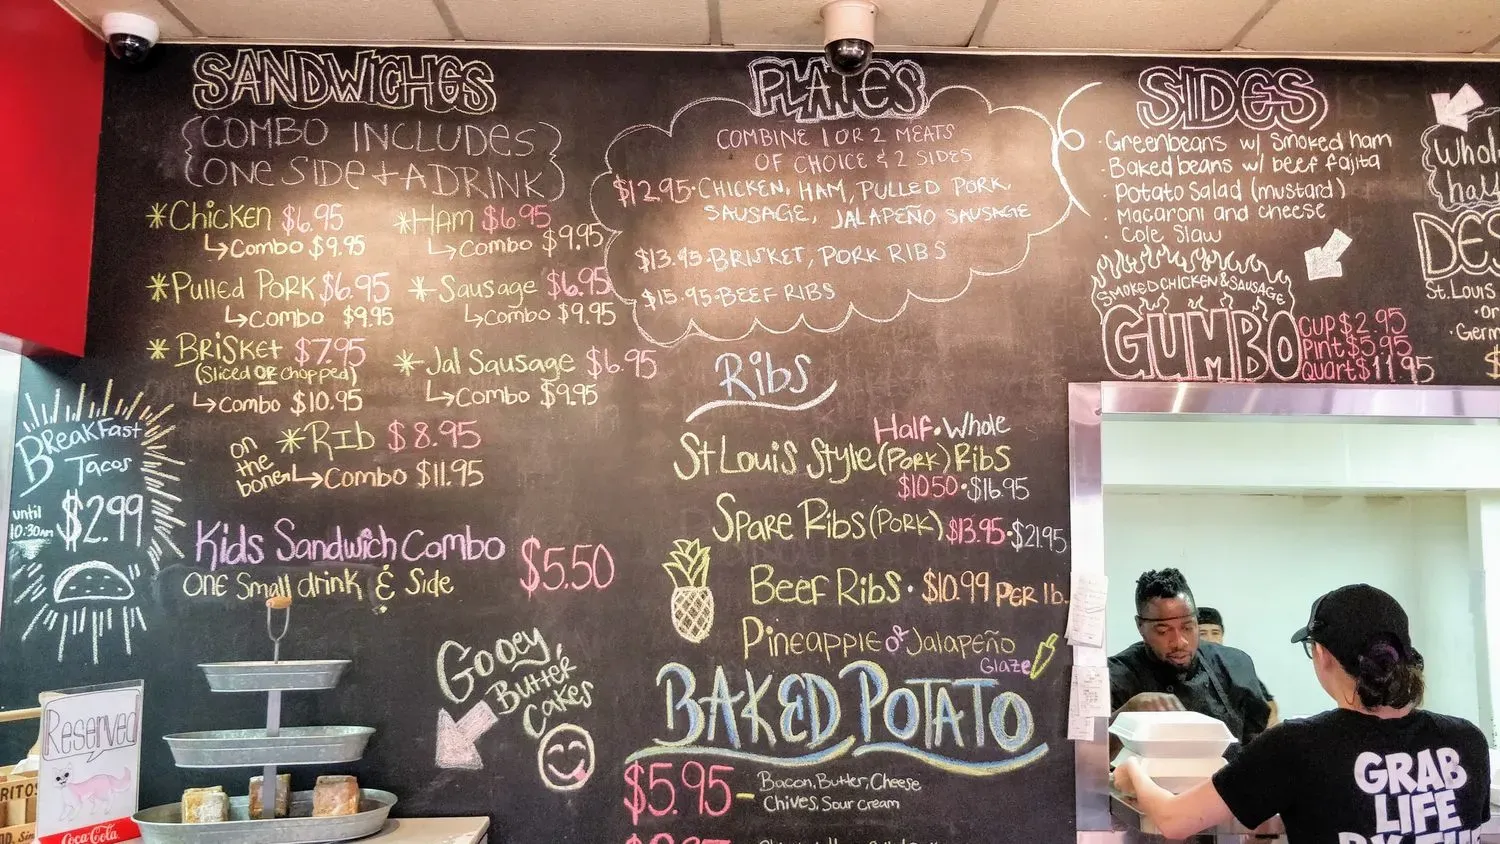 SANDWICHES
COMBO INCLUDES
ONE SIDE + A DRINK
Chicken $6.95
Combo $9.95
Ham $6.95
Combo $9.95
Pulled Pork $6.95
Combo $9.95
Sausage $6.95
Combo $9.95
Brisket $7.95
(Sliced or chopped)
Combo $10.95
Jal Sausage $6.95
Combo $9.95
on
the
bone
Rib $8.95
Combo $11.95
Kids Sandwich Combo $5.50
One Small drink & Side
Breakfast
Tacos
$2.99
until
10:30am
Gooey
Butter
Cakes
Reserved
Coca-Cola
PLATES
COMBINE 1 OR 2 MEATS
OF CHOICE & 2 SIDES
$12.95 · CHICKEN, HAM, PULLED PORK,
SAUSAGE, JALAPEÑO SAUSAGE
$13.95 · BRISKET, PORK RIBS
$15.95 · BEEF RIBS
Ribs
Half · Whole
St Louis Style (Pork) Ribs
$10.50 · $16.95
Spare Ribs (Pork) $13.95 · $21.95
Beef Ribs · $10.99 per lb.
Pineapple or Jalapeño
Glaze
BAKED POTATO
$5.95 – Bacon, Butter, Cheese
Chives, Sour cream
SIDES
· Greenbeans w/ smoked ham
· Baked beans w/ beef fajita
· Potato Salad (mustard)
· Macaroni and cheese
· Cole Slaw
SMOKED CHICKEN & SAUSAGE
GUMBO
Cup $2.95
Pint $5.95
Quart $11.95
DES
St. Louis
GRAB
LIFE